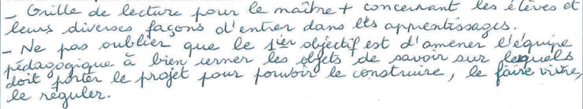 _ Grille de lecture pour le maître + concernant les élèves et
leurs diverses façons d'entrer dans les apprentissages.
_ Ne pas oublier que le 1er objectif est d'amener l'équipe
pédagogique à bien cerner les objets de savoir sur lesquels
doit porter le projet pour pouvoir le construire, le faire vivre,
le réguler.